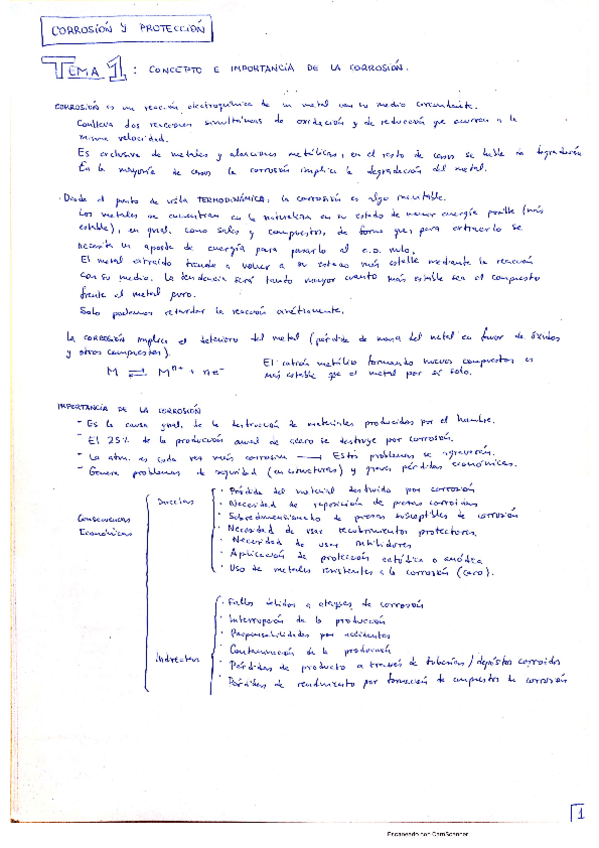 CORROSIÓN Y PROTECCIÓN
TEMA 1 : CONCEPTO E IMPORTANCIA DE LA CORROSIÓN.
CORROSIÓN es una reacción electroquímica de un metal con su medio circundante.
Conlleva dos reacciones simultáneas de oxidación y de reducción que ocurren a la
misma velocidad.
Es exclusiva de metales y aleaciones metálicas, en el resto de casos se habla de degradación
En la mayoría de casos la corrosión implica la degradación del metal.
· Desde el punto de vista TERMODINÁMICA, la corrosión es algo inevitable.
Los metales se encuentran en la naturaleza en su estado de menor energía posible (más
estable), en gnal. como sales y compuestos, de forma que, para extraerlo se
necesita un aporte de energía para pasarlo al e.o. nulo.
El metal extraído tiende a volver a su estado más estable mediante la reacción
con su medio. La tendencia será tanto mayor cuanto más estable sea el compuesto
frente al metal puro.
Solo podemos retardar la reacción cinéticamente.
La CORROSIÓN implica el deterioro del metal (pérdida de masa del metal en favor de óxidos
y otros compuestos).
M ⇌ Mⁿ⁺ + ne⁻
El catión metálico formando nuevos compuestos es
más estable que el metal por sí solo.
IMPORTANCIA DE LA CORROSIÓN
- Es la causa gnal. de la destrucción de materiales producidos por el hombre.
- El 25% de la producción anual de acero se destruye por corrosión.
- La atm. es cada vez más corrosiva → Estos problemas se agravarán.
- Genera problemas de seguridad (en estructuras) y graves pérdidas económicas.
Consecuencias
Económicas
Directas
· Pérdida del material destruido por corrosión
· Necesidad de reposición de piezas corroídas
· Sobredimensionado de piezas susceptibles de corrosión
· Necesidad de usar recubrimientos protectores.
· Necesidad de usar inhibidores
· Aplicación de protección catódica o anódica
· Uso de metales resistentes a la corrosión (caro).
Indirectas
· Fallos debidos a ataques de corrosión
· Interrupción de la producción
· Responsabilidades por accidentes
· Contaminación de la producción
· Pérdidas de producto a través de tuberías / depósitos corroídos
· Pérdidas de rendimiento por formación de compuestos de corrosión
1
Escaneado con CamScanner